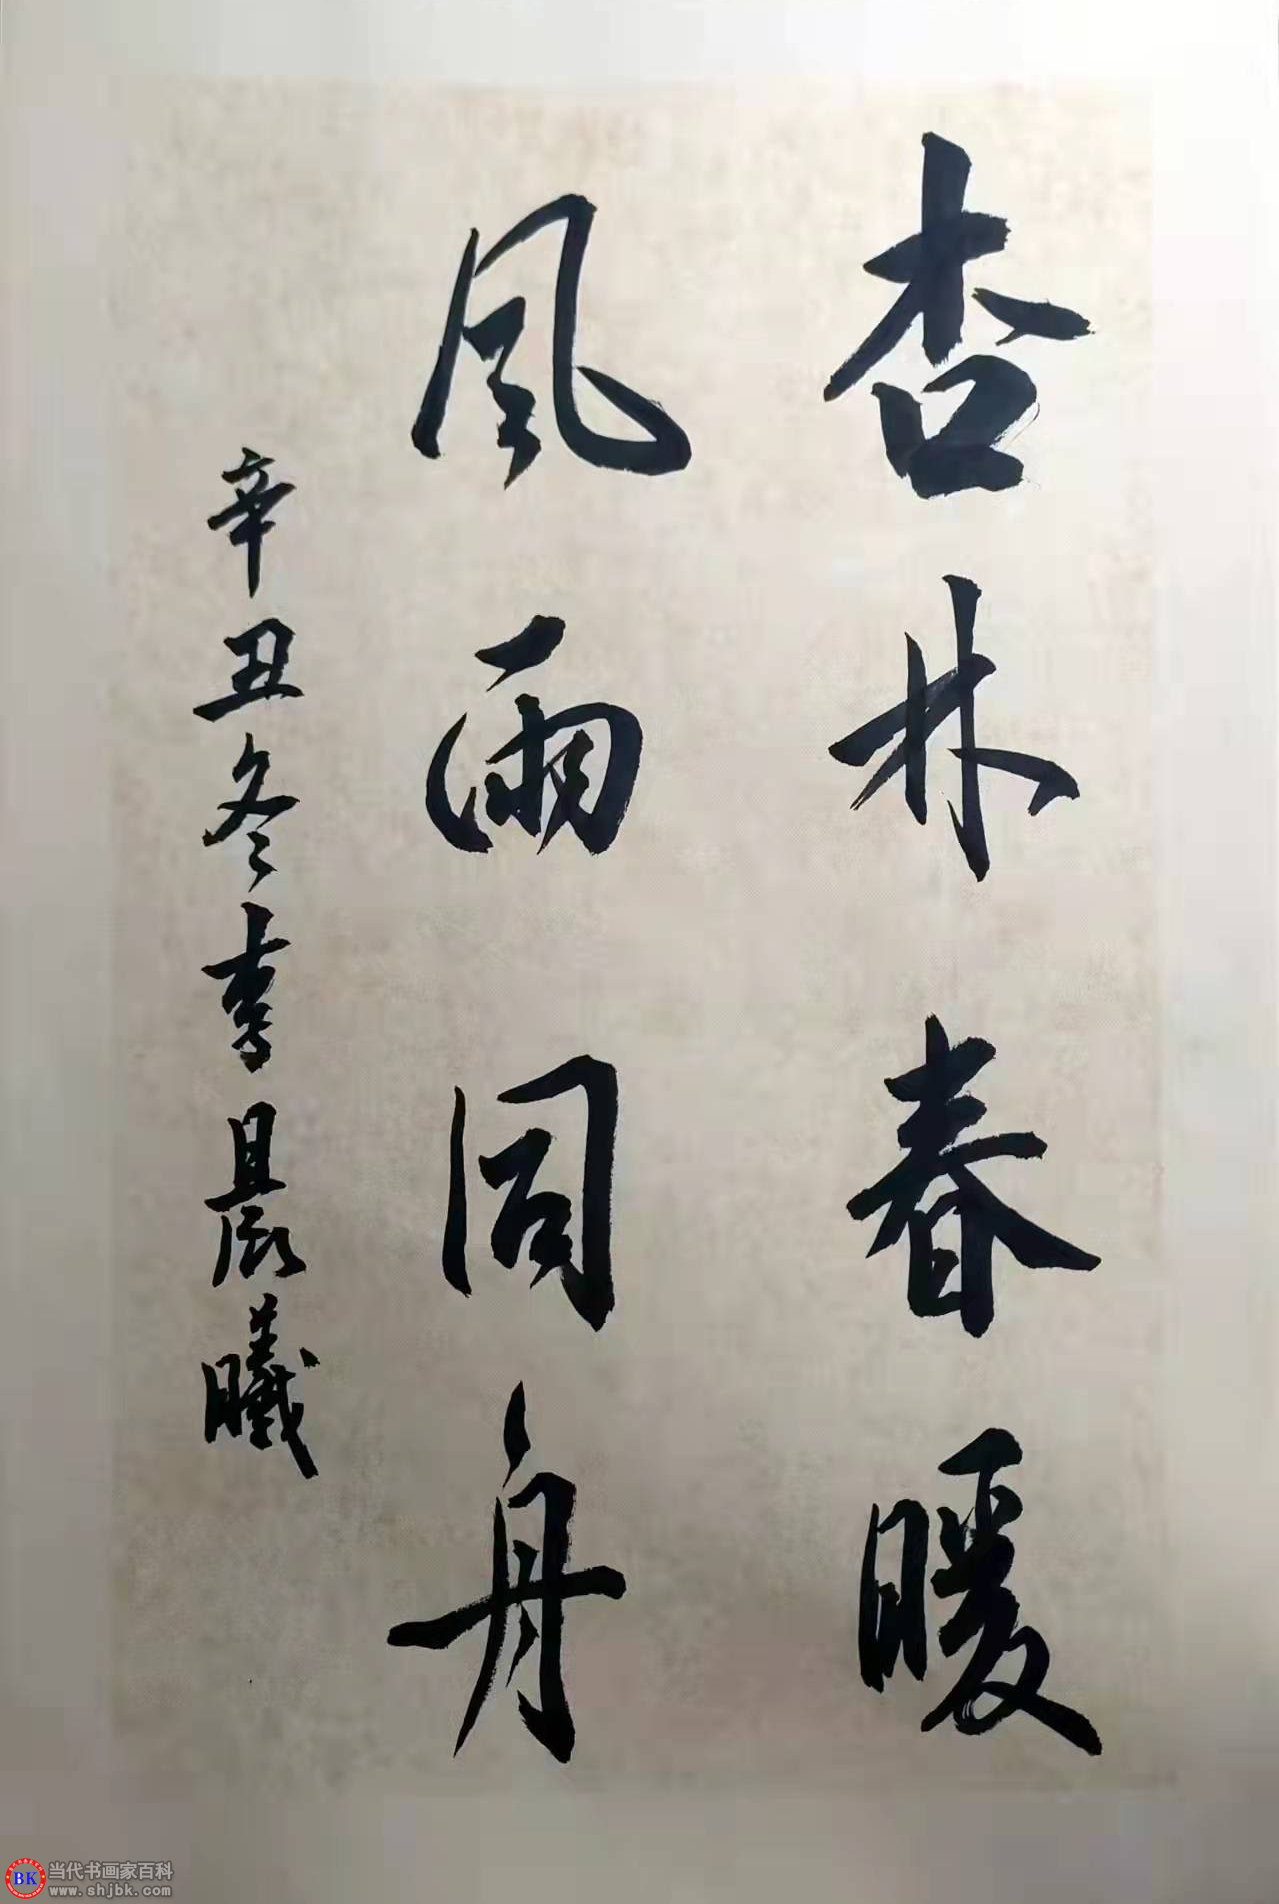 杏林春暖
风雨同舟
辛丑冬李晨曦
BK
当代书画家百科
www.shjbk.com